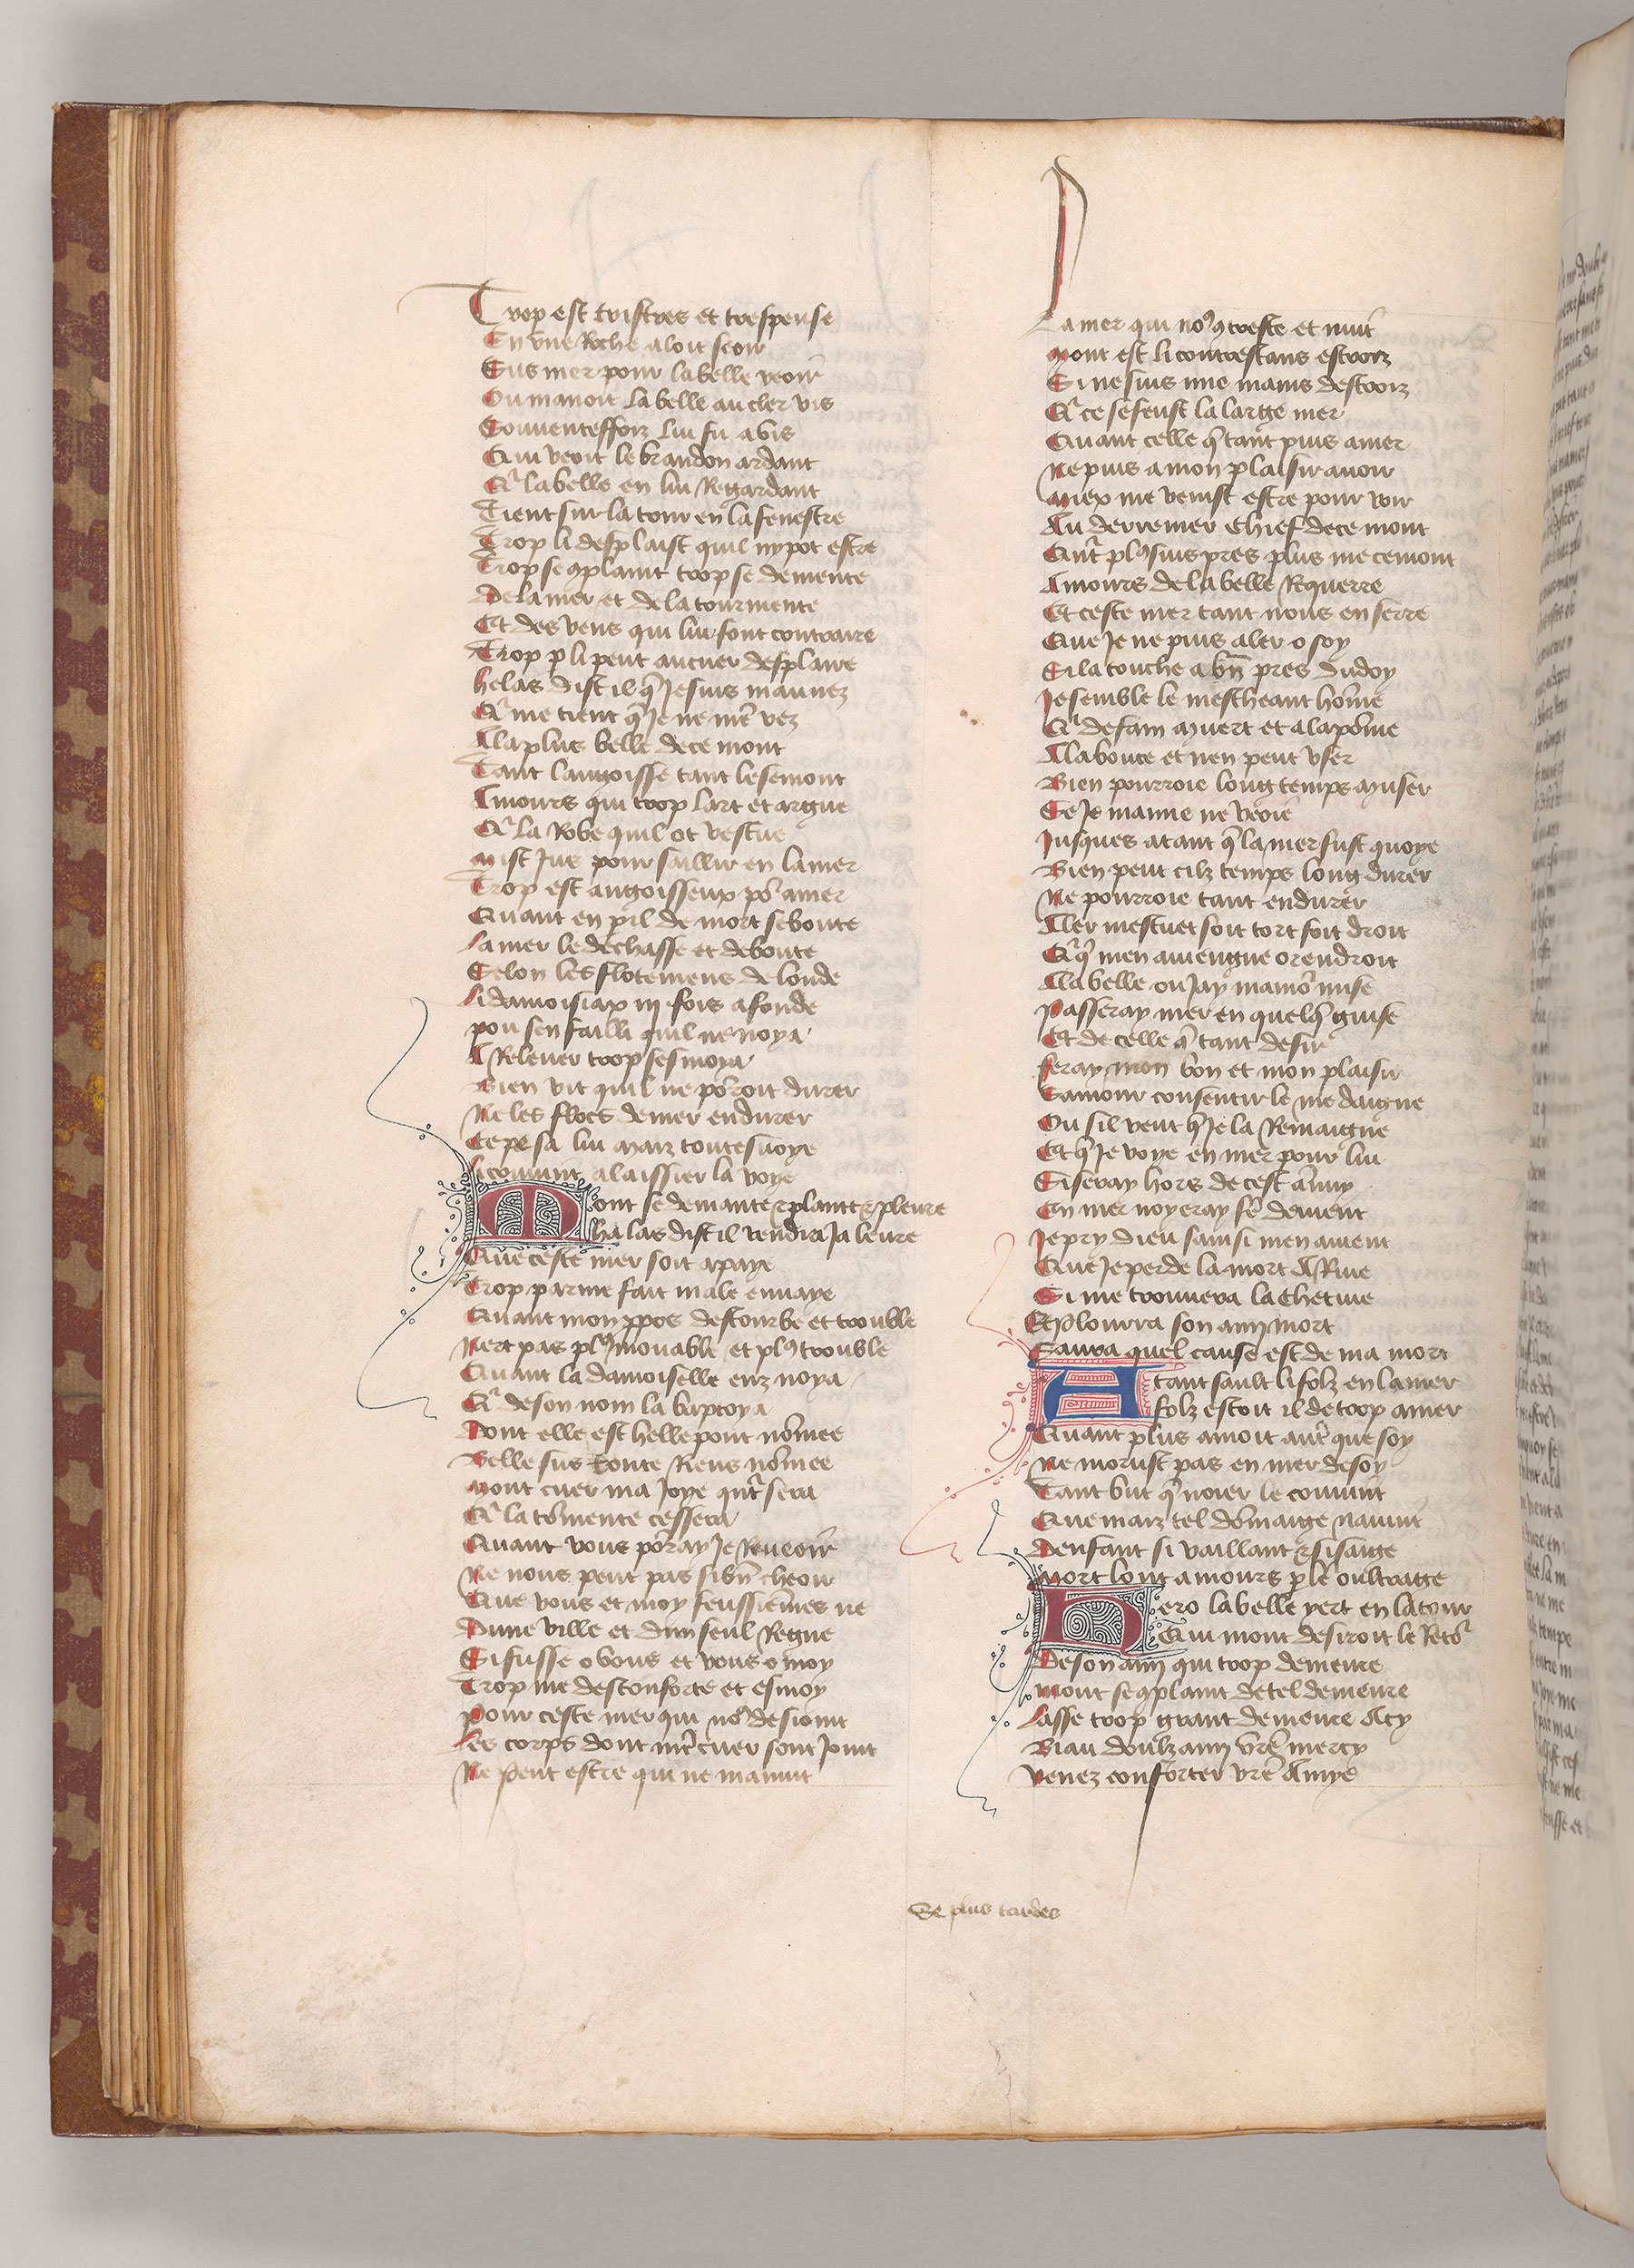 Trop est tristres et trespense
En une Roche aloit seoir
Sus mer pour la belle veoir
Ou manoit la belle au cler vis
Souventeffoiz lui fu avis
Qui veoit le brandon ardant
Q la belle en lui Regardant
Tient sur la tour en la fenestre
Trop li desplaist quil ny pot estre
Trop se 9plaint trop se demente
De la mer et de la tourmente
Et des vens qui lui font contraire
Trop p li peut au cuer desplaire
helas dist il q Je suis mauvez
Q me tient q Je ne men vez
A la plus belle de ce mont
Tant langoisse tant le semont
Amours qui trop lart et argue
Q la Robe quil ot vestue
mist Jus pour saillir en la mer
Trop est angoisseux por amer
Quant en pil de mort se boute
La mer le dechasse et deboute
Selon les flotemens de londe
Li damoisiax iii fois afonde
pou sen failli quil ne noya
A Relever trop sesmoya
Bien vit quil ne porroit durer
Ne les flocs de mer endurer
Ce pesa lui maiz toutesvoye
li convint a laissier la voye
Mont se demante 9plaint & pleure
ha las dist il vendra Ja leure
Que ceste mer soit apaye
Trop par me fait male envaye
Quant mon ppos destourbe et trouble
Nert pas pl9 movable et pl9 trouble
Quant la damoiselle enz noya
Q de son nom la baptoya
Dont elle est hellepont nomee
Belle sus toute Riens nomee
mont cuer ma Joye qnt sera
Q la tormente cessera
Quant vous porray Je Reveoir
Ne nous peut pas si bn cheoir
Que vous et moy feussiemes ne
Dune ville et dun seul Regne
Si fusse o vous et vous o moy
Trop me desconforte et esmoy
Pour ceste mer qui no9 desioint
Les corps dont nre cuer sont Joint
Ne peut estre qui ne manuit
La mer qui no9 9treste et nuit
Mont est li contrestans estroiz
Si ne suis mie mains destroiz
Q ce se feust la large mer
Quant celle q tant puis amer
Ne puis a mon plaisir avoir
Miex me venist estre pour voir
Au derrenier chief de ce mont
Qnt pl9 suis pres plus me cemont
Amours de la belle Requerre
Et ceste mer tant nous enserre
Que Je ne puis aler o soy
Si la touche a bn pres du doy
Je semble le mescheant home
Q de fain muert et a la pome
A la bouce et nen peut user
Bien pourroie long temps muser
Se Je mamie ne veoie
Jusques a tant q la mer fust quoye
Bien peut cilz temps long durer
Ne pourroie tant endurer
Aler mestuet soit tort soit droit
Q q men aviengne orendroit
A la belle ou Jay mamor mise
Passeray mer en quelq guise
Et de celle q tant desir
feray mon bon et mon plaisir
Samour consentir le me daigne
Ou sil veut q Je la Remaigne
Et q Je voye en mer pour lui
Si seray hors de cest anuy
En mer noyeray
Je pry dieu sainsi men avient
Que Je perde la mort A Rive
Si me trouvera la chetive
Et plourra son amy mort
Saura quel cause est de ma mort
Atant sault li folz en la mer
folz estoit il de trop amer
Quant plus amoit autre que soy
Ne morust pas en mer de soy
Tant but q noier le convint
Que maiz tel domaige navint
Denfant si vaillant & si saige
Mort lont amours p le oultraige
Hero la belle yert en la tour
Qui mont desiroit le Reto
De son amy qui trop demeure
Mont se 9plaint de tel demeure
Lasse trop grant demeure A cy
Biau doulz amy vre mercy
Venez conforter vre Amye
Se plus tardes